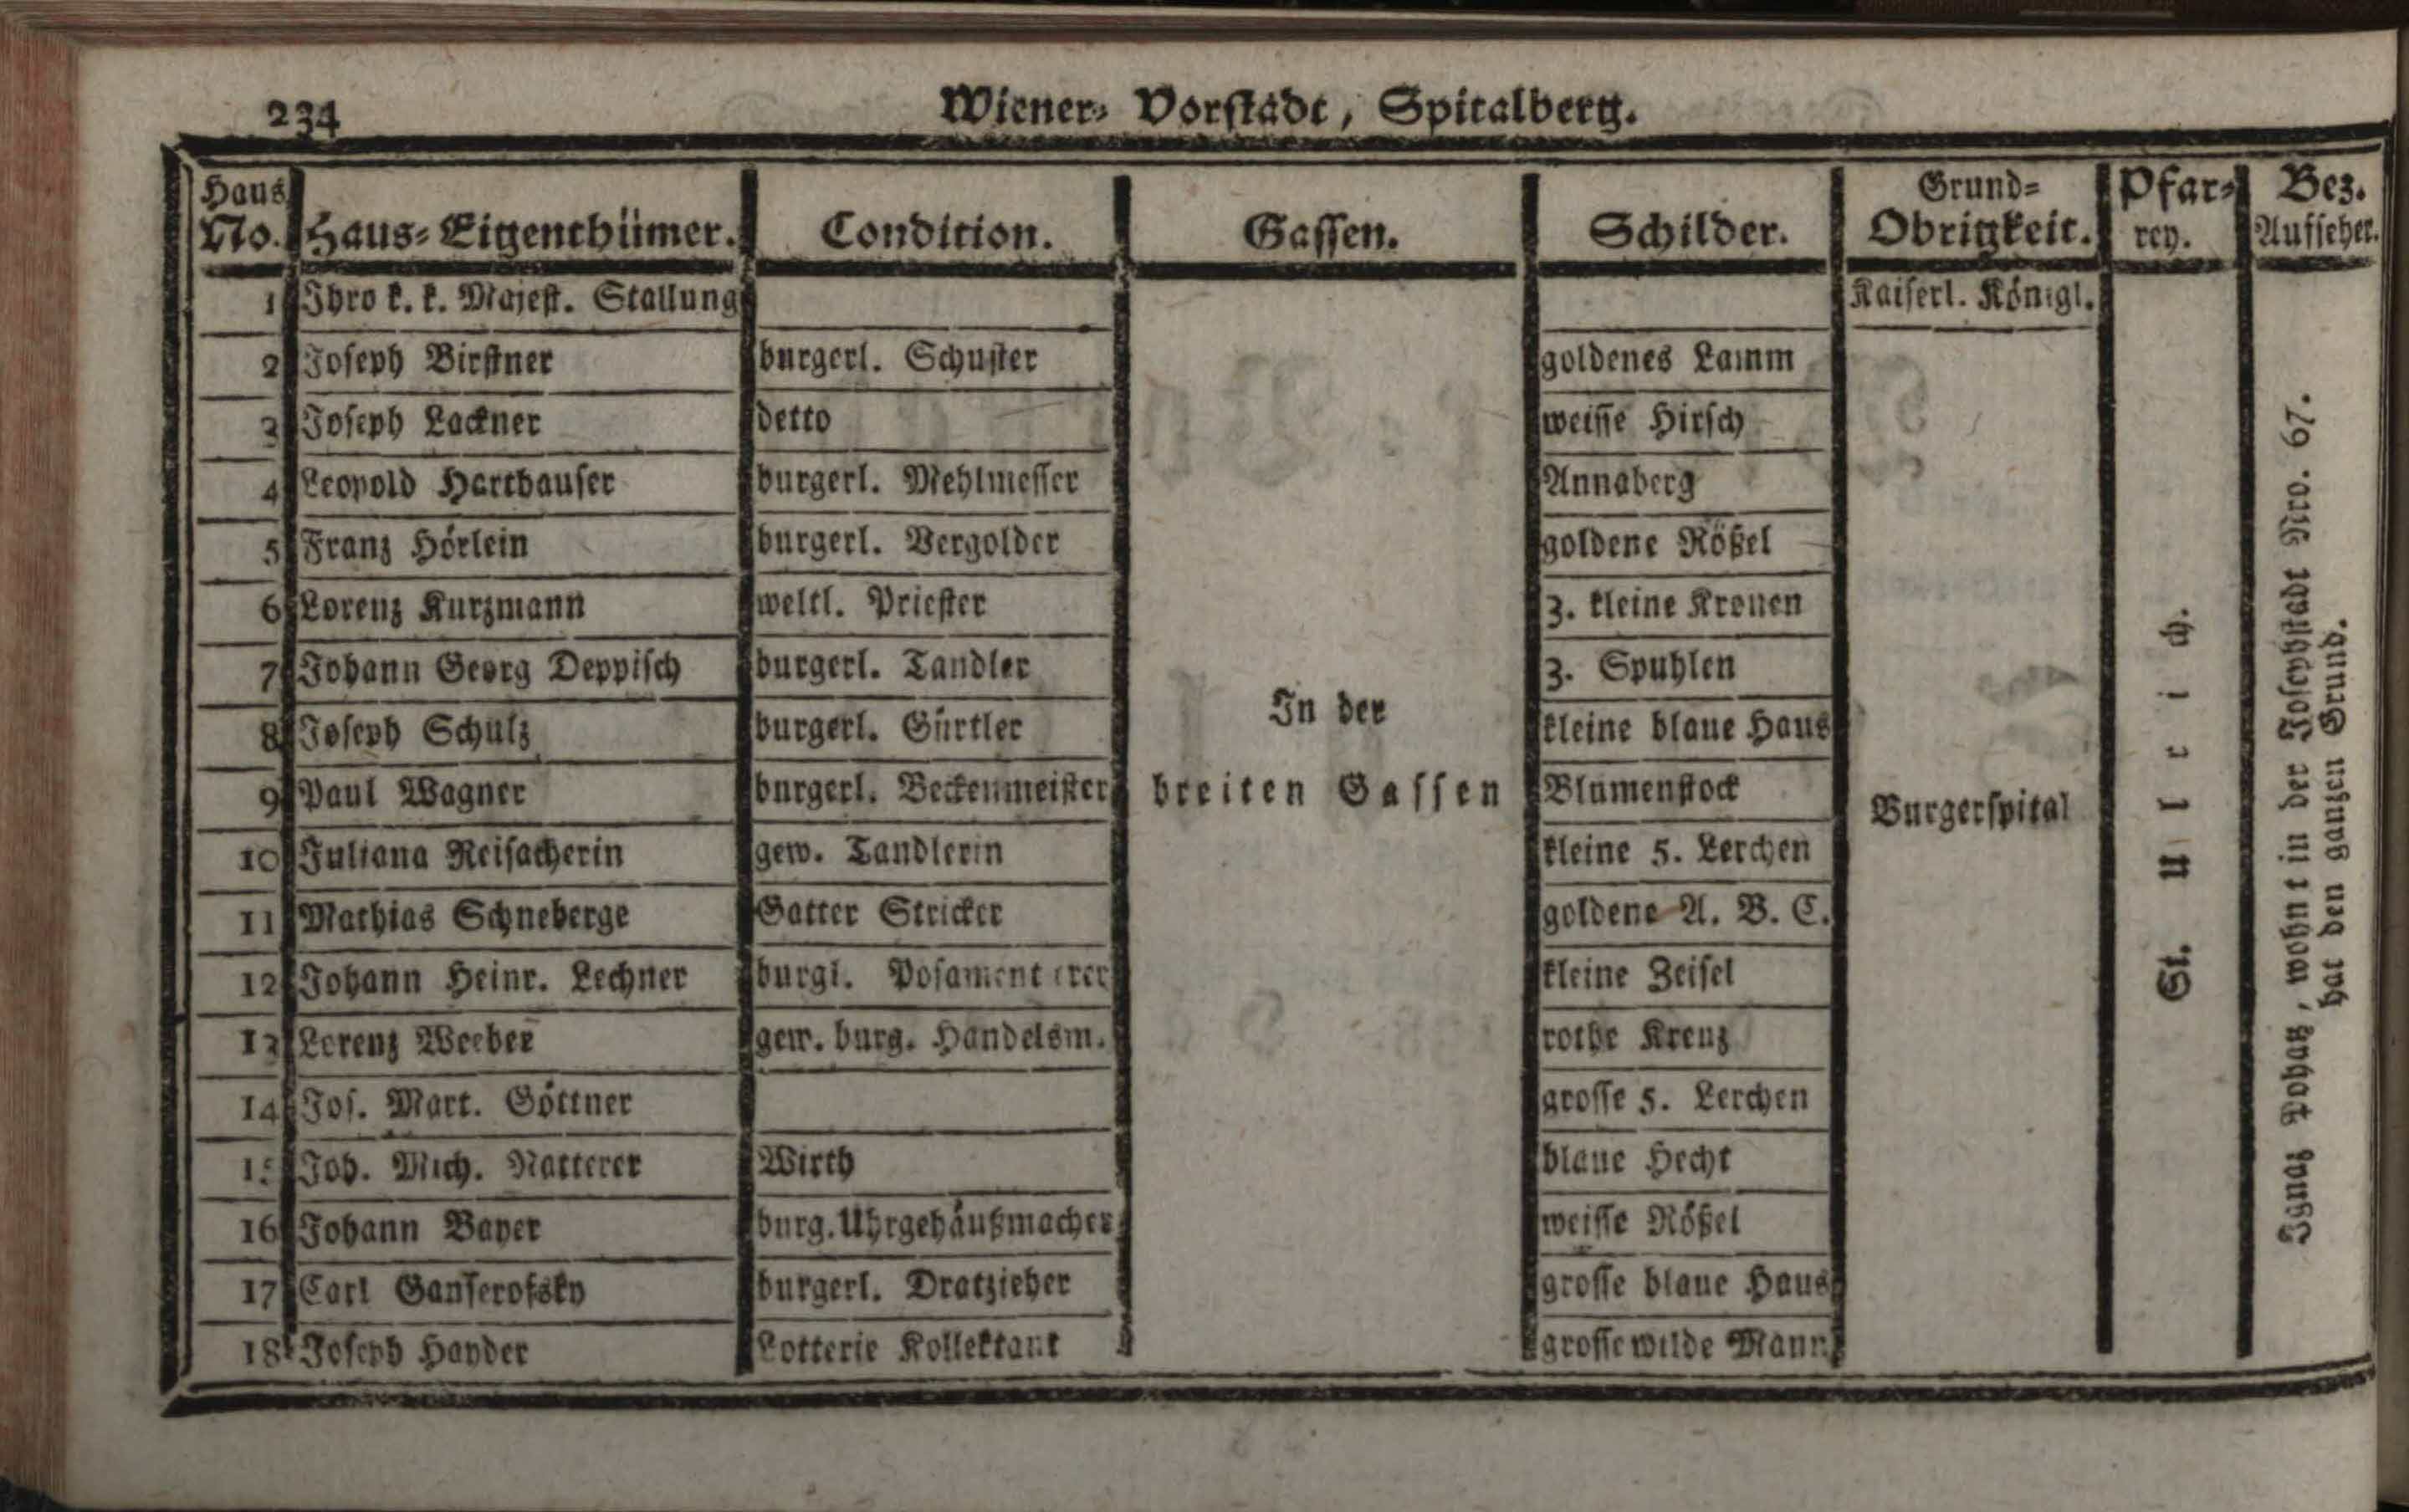 234
Wiener- Vorstädt, Spitalberg.
Haus No. Haus-Eigenthümer. Condition. Gassen. Schilder. Grund-Obrigkeit. Pfar-rey. Bez. Aufseher.
1 Ihro k. k. Majest. Stallung Kaiserl. Königl.
2 Joseph Birstner burgerl. Schuster goldenes Lamm
3 Joseph Lackner detto weisse Hirsch
4 Leopold Harthauser burgerl. Mehlmesser Annaberg
5 Franz Hörlein burgerl. Vergolder goldene Rößel
6 Lorenz Kurzmann weltl. Priester 3. kleine Kronen
7 Johann Georg Deppisch burgerl. Tandler 3. Spuhlen
8 Joseph Schulz burgerl. Gürtler In der kleine blaue Haus
9 Paul Wagner burgerl. Beckenmeister breiten Gassen Blumenstock Burgerspital
10 Juliana Reisacherin gew. Tandlerin kleine 5. Lerchen
11 Mathias Schneberge Gatter Stricker goldene A. B. C.
12 Johann Heinr. Lechner burgl. Posamentirer kleine Zeisel
13 Lorenz Weeber gew. burg. Handelsm. rothe Kreuz
14 Jos. Mart. Göttner grosse 5. Lerchen
15 Joh. Mich. Natterer Wirth blaue Hecht
16 Johann Bayer burg. Uhrgehäußmacher weisse Rößel
17 Carl Ganserofsky burgerl. Dratzieher grosse blaue Haus
18 Joseph Hayder Lotterie Kollektant grosse wilde Mann
St. Ulrich.
Ignaz Pohatz, wohnt in der Josephstadt Nro. 67.
hat den ganzen Grund.